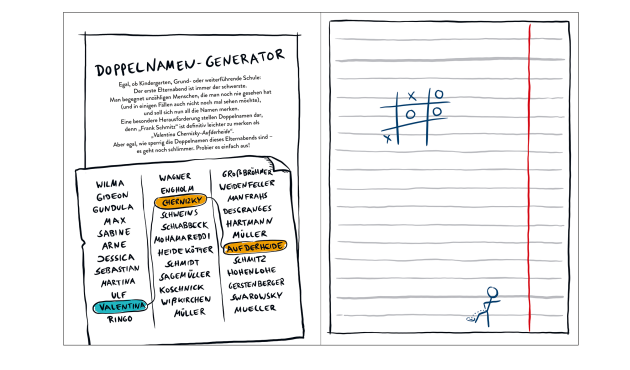 DOPPELNAMEN-GENERATOR
Egal, ob Kindergarten, Grund- oder weiterführende Schule:
Der erste Elternabend ist immer der schwerste.
Man begegnet unzähligen Menschen, die man noch nie gesehen hat
(und in einigen Fällen auch nicht noch mal sehen möchte),
und soll sich nun all die Namen merken.
Eine besondere Herausforderung stellen Doppelnamen dar,
denn „Frank Schmitz“ ist definitiv leichter zu merken als
„Valentina Chernizky-Aufderheide“.
Aber egal, wie sperrig die Doppelnamen dieses Elternabends sind –
es geht noch schlimmer. Probier es einfach aus!
WILMA
GIDEON
GUNDULA
MAX
SABINE
ARNE
JESSICA
SEBASTIAN
MARTINA
ULF
VALENTINA
RINGO
WAGNER
ENGHOLM
CHERNIZKY
SCHWEINS
SCHLABBECK
MOHAMAREDDI
HEIDE KÖTTER
SCHMIDT
SAGEMÜLLER
KOSCHNICK
WIRKIRCHEN
MÜLLER
GROßBRÖHMER
WEIDENFELLER
MANFRAHS
DESGRANGES
HARTMANN
MÜLLER
AUFDERHEIDE
SCHMITZ
HOHENLOHE
GERSTENBERGER
SWAROWSKY
MUELLER
X O
O O
X